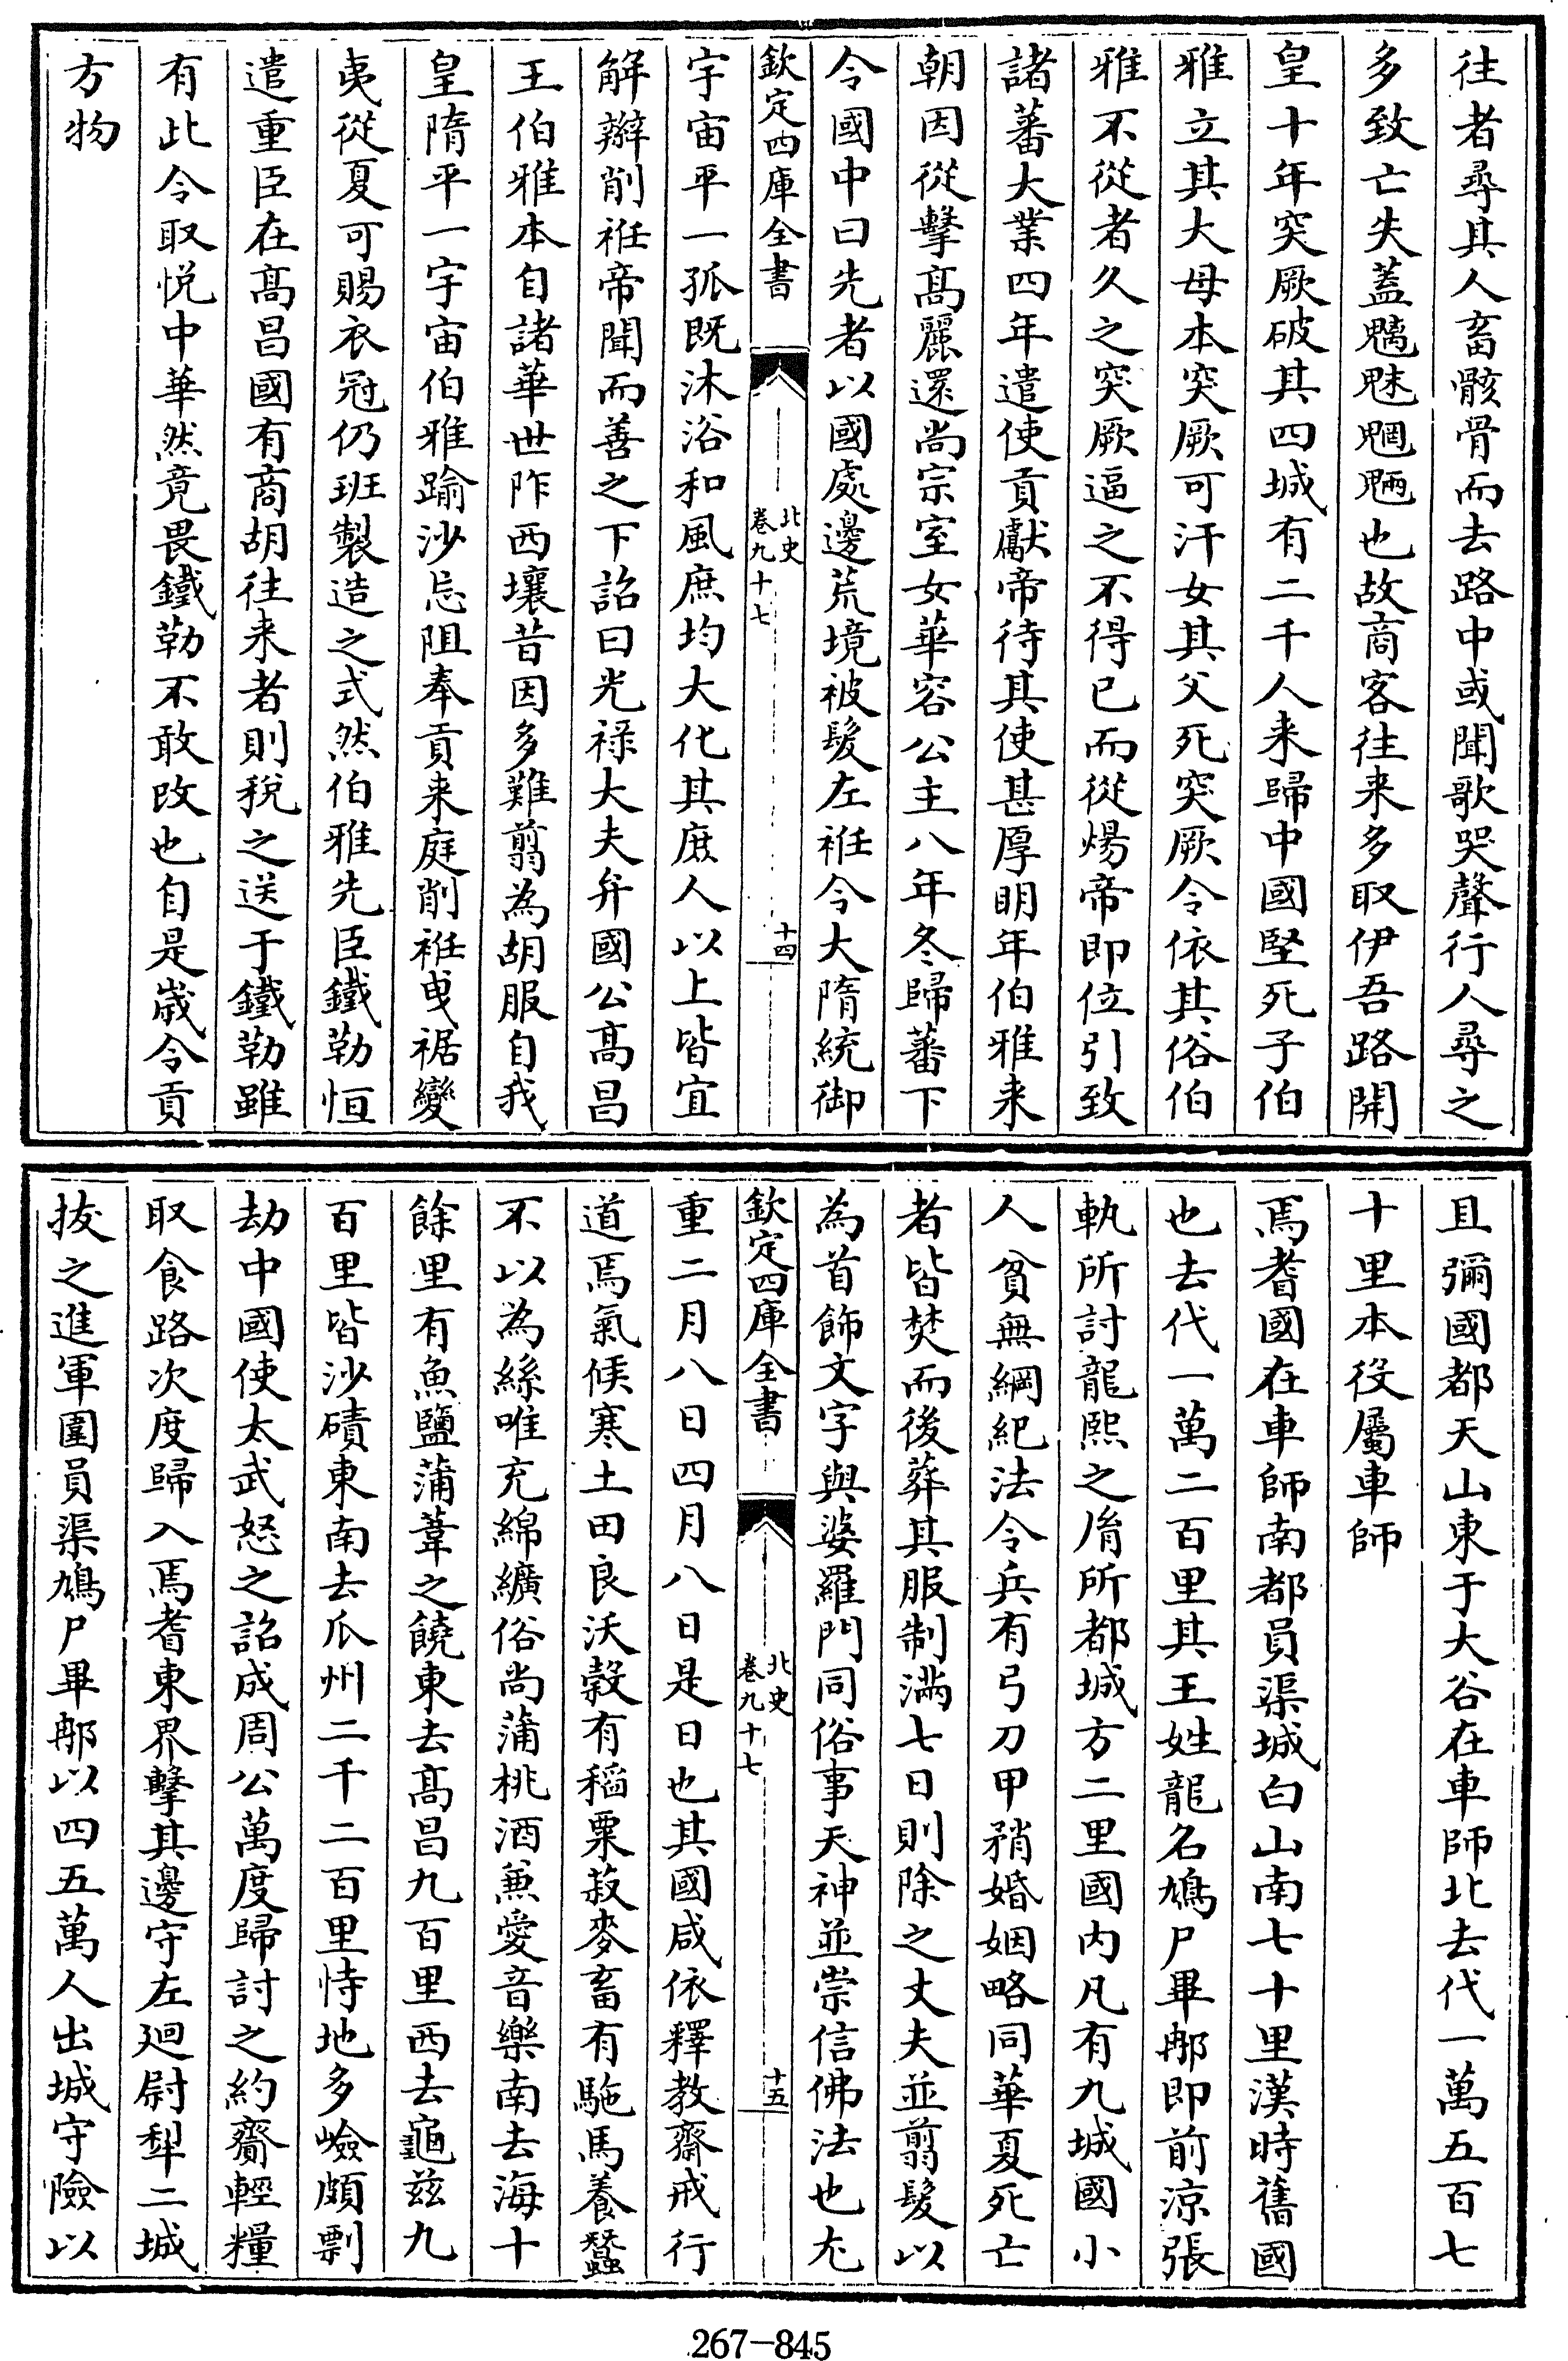 往者尋其人畜骸骨而去路中或聞歌哭聲行人尋之
多致亡失蓋魑魅魍魎也故商客往来多取伊吾路開
皇十年突厥破其四城有二千人来歸中國堅死子伯
雅立其大母本突厥可汗女其父死突厥令依其俗伯
雅不從者久之突厥逼之不得已而從煬帝即位引致
諸蕃大業四年遣使貢獻帝待其使甚厚明年伯雅来
朝因從擊髙麗還尚宗室女華容公主八年冬歸蕃下
令國中曰先者以國處邊荒境被髮左袵今大隋統御
欽定四庫全書
北史
卷九十七
十四
宇宙平一孤既沐浴和風庶均大化其庶人以上皆宜
解辮削袵帝聞而善之下詔曰光禄大夫弁國公髙昌
王伯雅本自諸華世阼西壤昔因多難翦為胡服自我
皇隋平一宇宙伯雅踰沙忘阻奉貢来庭削袵曳裾變
夷從夏可賜衣冠仍班製造之式然伯雅先臣鐵勒恒
遣重臣在髙昌國有商胡往来者則税之送于鐵勒雖
有此令取悦中華然竟畏鐵勒不敢改也自是歳令貢
方物
且彌國都天山東于大谷在車師北去代一萬五百七
十里本役屬車師
焉耆國在車師南都員渠城白山南七十里漢時舊國
也去代一萬二百里其王姓龍名鳩尸畢郍即前涼張
軌所討龍熙之胤所都城方二里國内凡有九城國小
人貧無綱紀法令兵有弓刀甲矟婚姻略同華夏死亡
者皆焚而後葬其服制滿七日則除之丈夫並翦髮以
為首飾文字與婆羅門同俗事天神並崇信佛法也尤
欽定四庫全書
北史
卷九十七
十五
重二月八日四月八日是日也其國咸依釋教齋戒行
道焉氣候寒土田良沃穀有稻粟菽麥畜有駞馬養蠶
不以為絲唯充綿纊俗尚蒲桃酒兼愛音樂南去海十
餘里有魚鹽蒲葦之饒東去髙昌九百里西去龜兹九
百里皆沙磧東南去瓜州二千二百里恃地多嶮頗剽
劫中國使太武怒之詔成周公萬度歸討之約齎輕糧
取食路次度歸入焉耆東界擊其邊守左廻尉犁二城
拔之進軍圍員渠鳩尸畢郍以四五萬人出城守險以
267-845